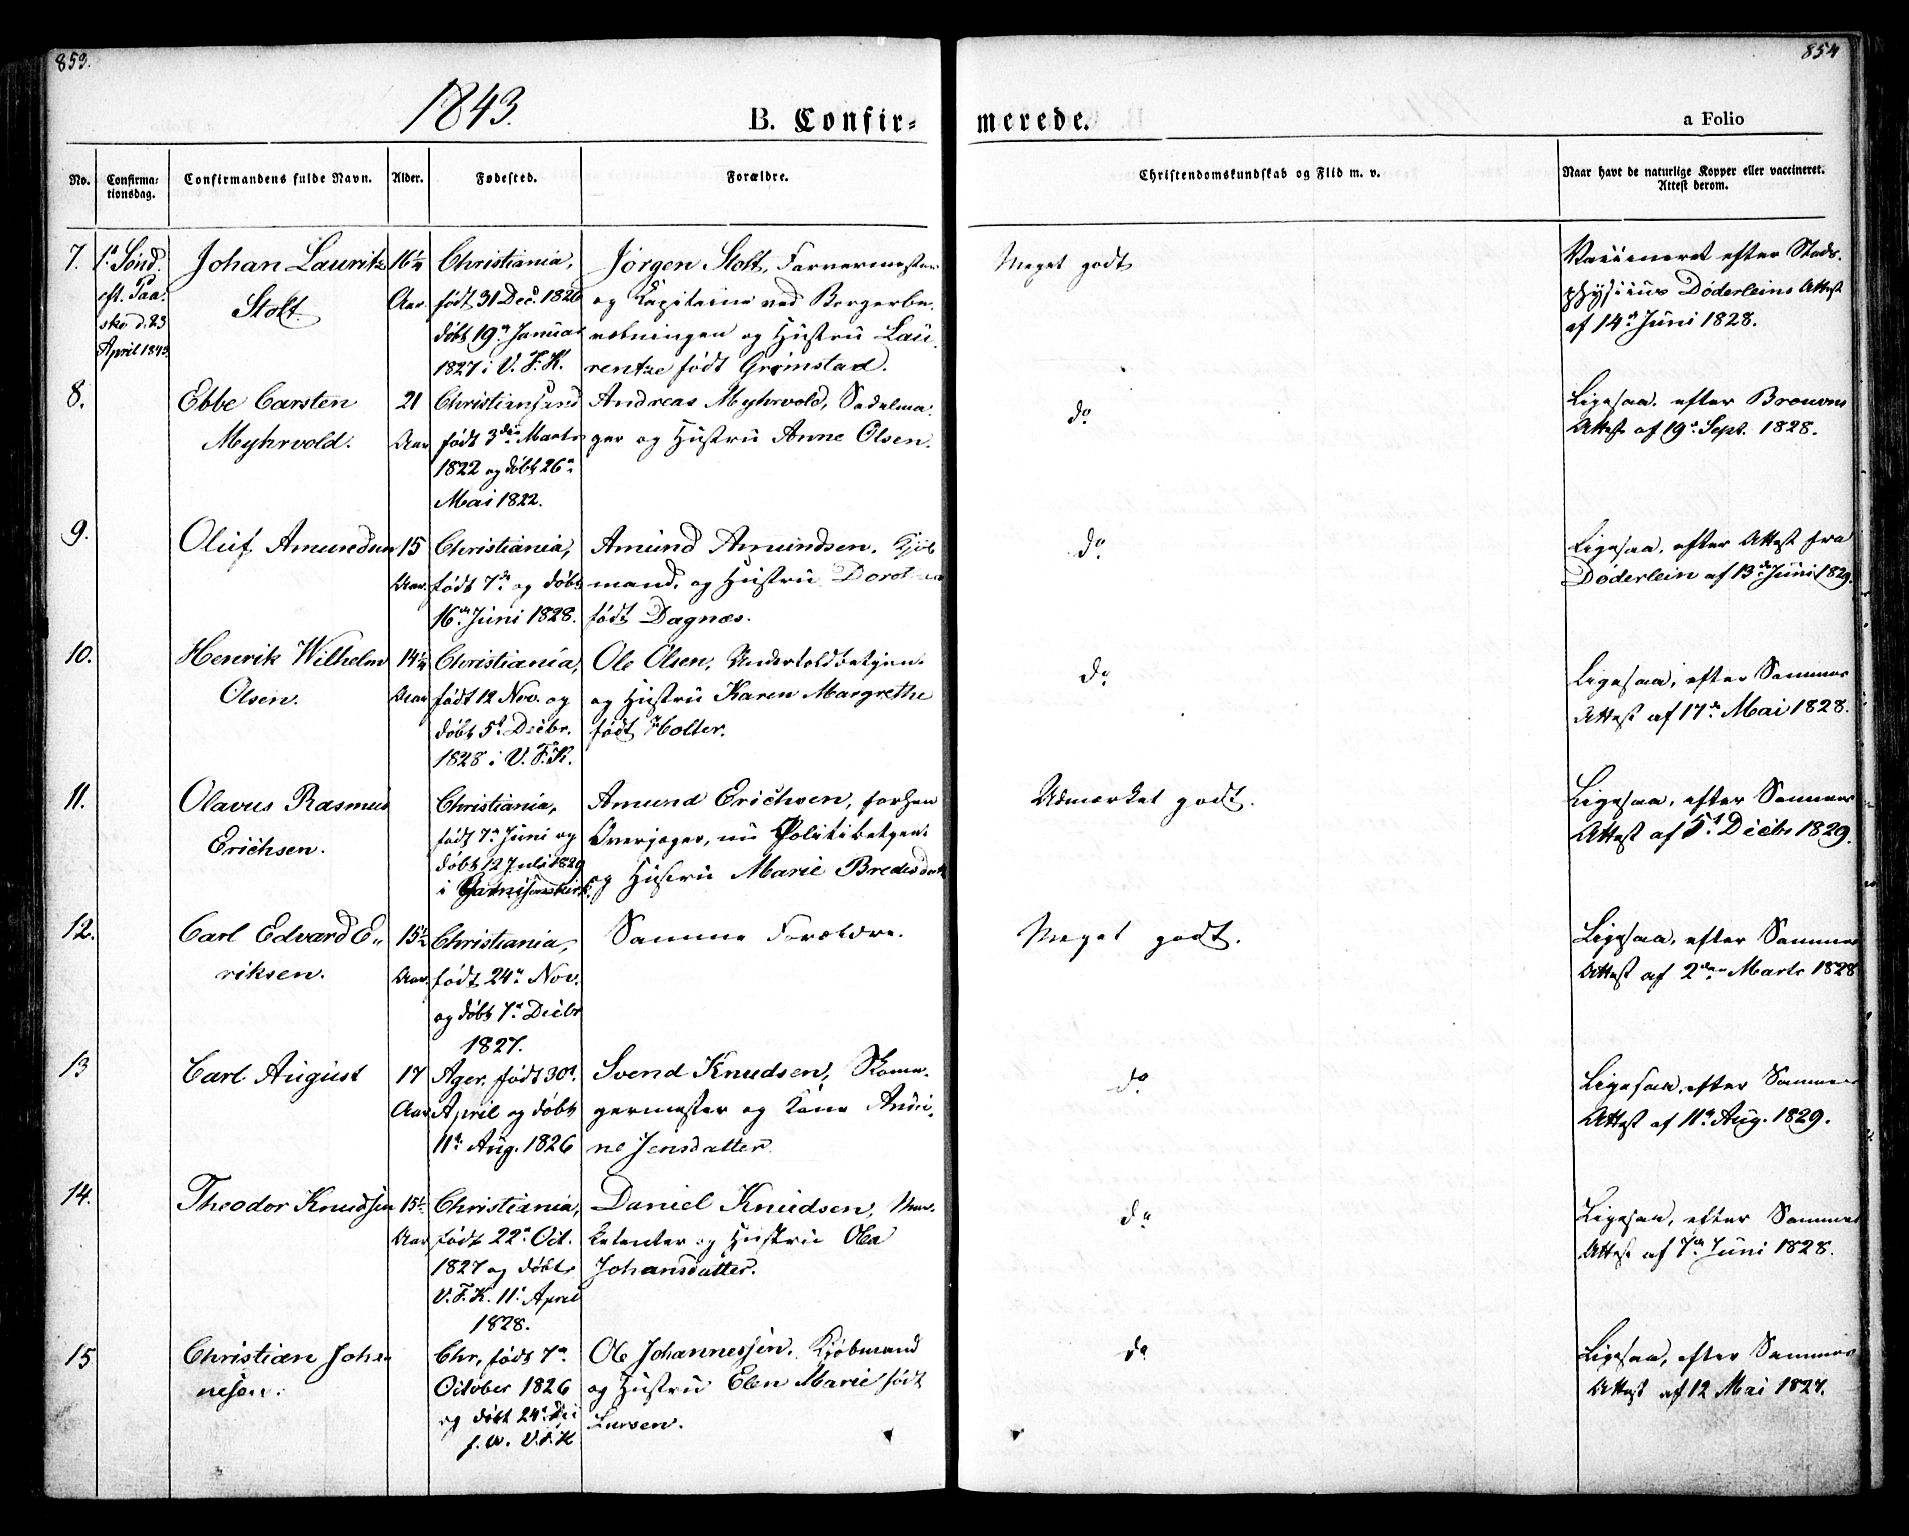 853.
854
1843.
B. Confir-
merede.
a Folio
No.
Confirma-
tionsdag.
Confirmandens fulde Navn.
Alder.
Fødested.
Forældre.
Christendomskundskab og Flid m. v.
Naar havt de naturlige Kopper eller vaccineret.
Attest derom.
7.
1ste Sönd.
eft. Paa-
ske d. 23
April 1843.
Johan Lauritz
Stolt.
16 1/4
Aar.
Christiania,
født 31 Dec. 1826
døbt 19de Januar
1827 i V. F. K.
Jörgen Stolt, Farvermester
og Kapitaine ved Borgerbe-
væbningen og Hustru Lau-
rentze født Grimstad.
Meget godt
Vaccineret efter Stads-
physicus Døderleins Attest
af 14de Juni 1828.
8.
Ebbe Carsten
Myhrvold.
21
Aar
Christiansand
født 3die Marts
1822 og døbt 26de
Mai 1822.
Andreas Myhrvold, Sadelma-
ger og Hustru Anne Olsen.
do
Ligesaa, efter
Attest af 19de Sept. 1828.
9.
Oluf Amundsen
15
Aar.
Christiania,
født 7de og døbt
16de Juni 1828.
Amund Amundsen, Kjøb
mand, og Hustru Dorothea
født Dagnæs.
do
Ligesaa, efter Attest fra
Døderlein af 13de Juni 1829.
10.
Henrik Wilhelm
Olsen.
14 1/4
Aar
Christiania,
født 12 Nov. og
døbt 5te Decbr.
1828 i V. F. K.
Ole Olsen, Undertoldbetjen-
og Hustru Karen Margrethe
født Holter.
do
Ligesaa, efter Sammes
Attest af 17de Mai 1828.
11.
Olavus Rasmus
Erichsen.
Christiania,
født 7de Juni og
døbt 12 Juli 1829
i Garnisonskirk.
Amund Erichsen, forhen
Overjæger, nu Politibetjent
og Hustru Marie Bredesdatt
Udmærket godt.
Ligesaa, efter Sammes
Attest af 5te Decbr 1829.
12.
Carl Edvard E-
riksen.
15 1/2
Aar.
Christiania,
født 24de Nov.
og døbt 7de Decbr
1827.
Samme Forældre.
Meget godt.
Ligesaa, efter Sammes
Attest af 2den Marts 1828
13
Carl August
17
Aar
Ager, født 30te
April og døbt
11te Aug. 1826
Svend Knudsen, Skoma-
germester og Kone Andri-
ne Jensdatter.
do
Ligesaa, efter Sammes
Attest af 11te Aug. 1829.
14.
Theodor Knudsen
15 1/2
Aar
Christiania,
født 22de Oct.
1827 og døbt
V. F. K. 11te April
1828.
Daniel Knudsen, Mar-
ketenter og Hustru Olea
Johansdatter.
do
Ligesaa, efter Sammes
Attest af 7de Juni 1828.
15
Christian Johan
nesen.
Chr, født 7de
October 1826
og døbt 24de Dec
s. A. V. F. K
Ole Johannessen, Kjøbmand
og Hustru Elen Marie født
Larsen.
do
Ligesaa, efter Sammes
Attest af 12 Mai 1827.